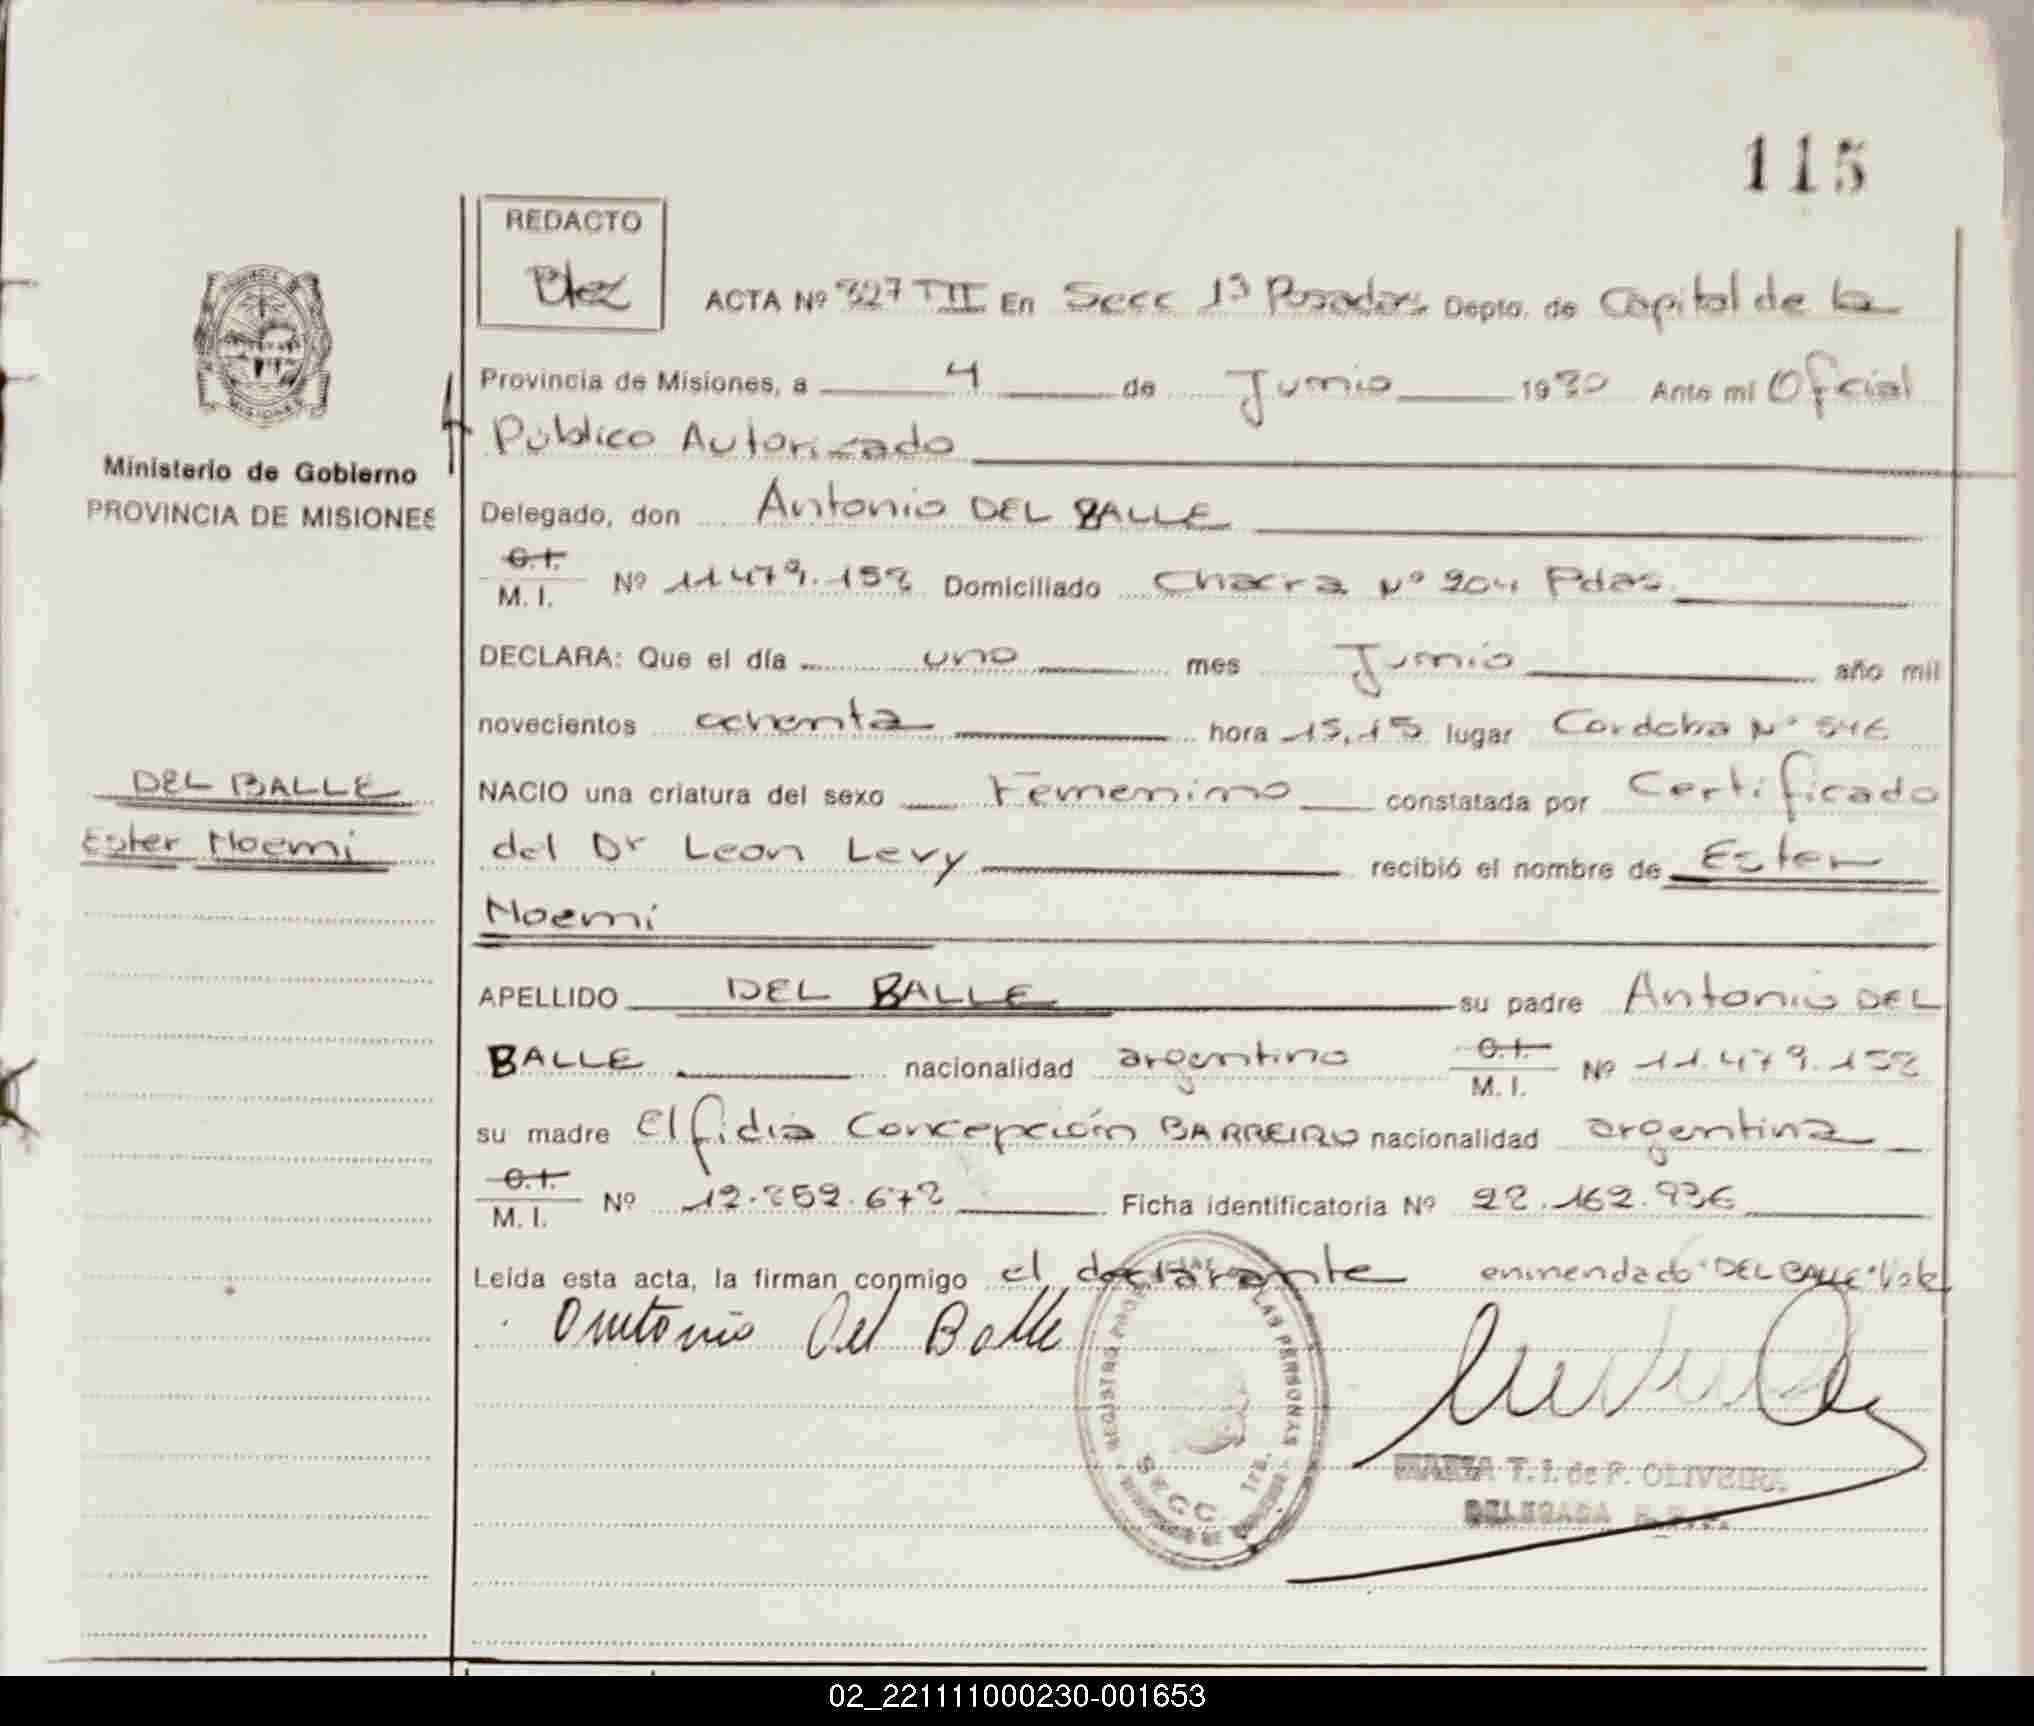 115
REDACTO
ACTA Nº 327 TIII En Secc 1ª Posadas Depto. de Capital de la
Provincia de Misiones, a 4 de Junio 1980 Ante mí Oficial
Público Autorizado
Ministerio de Gobierno
PROVINCIA DE MISIONES
Delegado, don Antonio DEL BALLE
C.I.
M. I. Nº 11.479.152 Domiciliado Chacra Nº 204 Pdas.
DECLARA: Que el día uno mes Junio año mil
novecientos ochenta hora 15,15 lugar Cordoba Nº 546
DEL BALLE
Ester Noemi
NACIO una criatura del sexo Femenino constatada por Certificado
del Dr Leon Levy recibió el nombre de Ester
Noemi
APELLIDO DEL BALLE su padre Antonio DEL
BALLE nacionalidad argentino C.I.
M. I. Nº 11.479.152
su madre Elfidia Concepción BARREIRO nacionalidad argentina
C.I.
M. I. Nº Ficha identificatoria Nº 22.162.936
Leída esta acta, la firman conmigo el declarante enmendado "DEL BALLE" Vale
Antonio Del Balle
REGISTRO PROV. LAS PERSONAS
SECC. 1ra.
MARIA T. I. de F. OLIVEIRA
DELEGADA
02_221111000230-001653